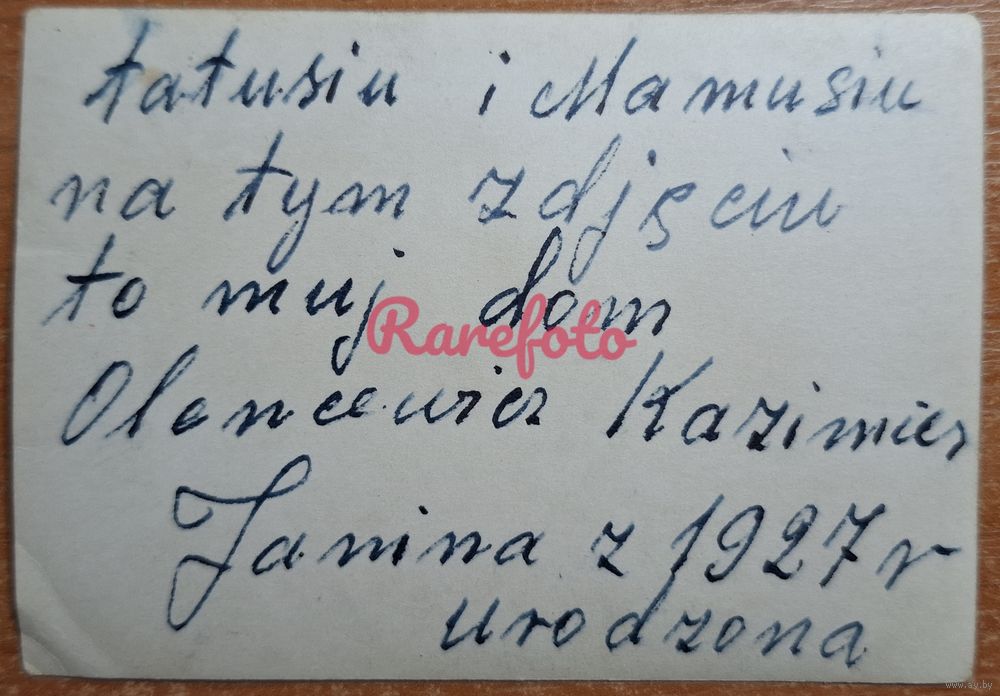 tatusiu i Mamusiu
na tym zdjęciu
to muj dom
Rarefoto
Olencewicz Kazimierz
Janina z 1927 r
urodzona
www.ay.by